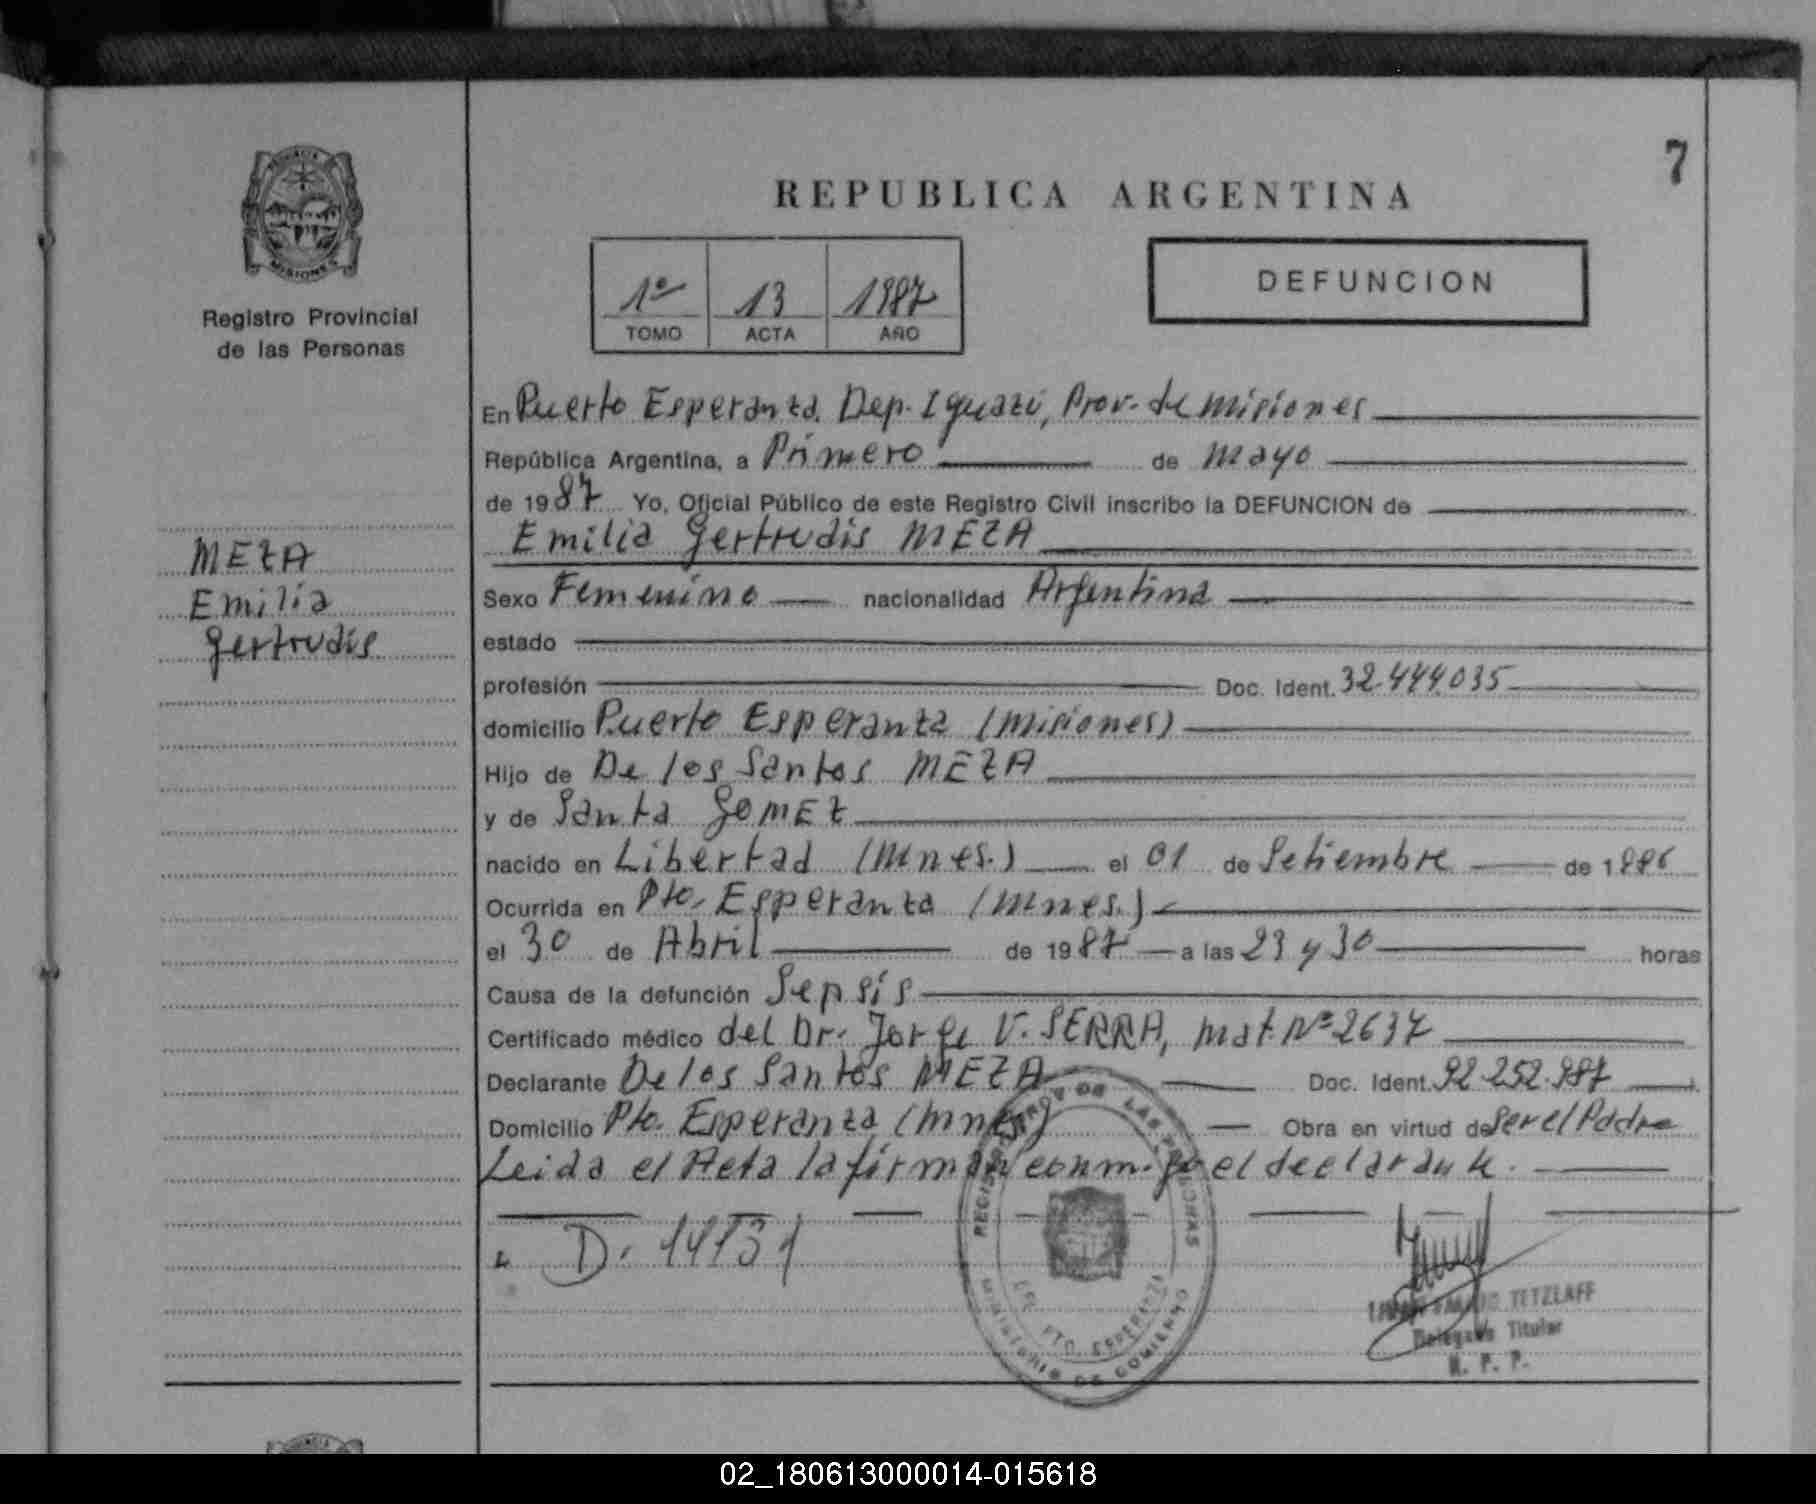 7
PROVINCIA
MISIONES
Registro Provincial
de las Personas
REPUBLICA ARGENTINA
1º 13 1987
TOMO ACTA AÑO
DEFUNCION
En Puerto Esperanza, Dep. Iguazú, Prov. de Misiones
República Argentina, a Primero de Mayo
de 1987 Yo, Oficial Público de este Registro Civil inscribo la DEFUNCION de
Emilia Gertrudis MEZA
MEZA
Emilia
Gertrudis
Sexo Femenino nacionalidad Argentina
estado
profesión Doc. Ident. 32.444.035
domicilio Puerto Esperanza (Misiones)
Hijo de De los Santos MEZA
y de Santa GOMEZ
nacido en Libertad (Mnes.) el 01 de Setiembre de 1986
Ocurrida en Pto. Esperanza (Mnes.)
el 30 de Abril de 1987 a las 23 y 30 horas
Causa de la defunción Sepsis
Certificado médico del Dr. Jorge V. SERRA, Mat. Nº 2637
Declarante De los Santos MEZA Doc. Ident. 92.252.987
Domicilio Pto. Esperanza (Mnes) Obra en virtud de Ser el Padre
Leida el Acta la firman conmigo el declarante.
D. 14131
REGISTRO DE LAS PERSONAS
PTO. ESPERANZA
MINISTERIO DE GOBIERNO
TETZLAFF
Delegado Titular
R. P. P.
02_180613000014-015618